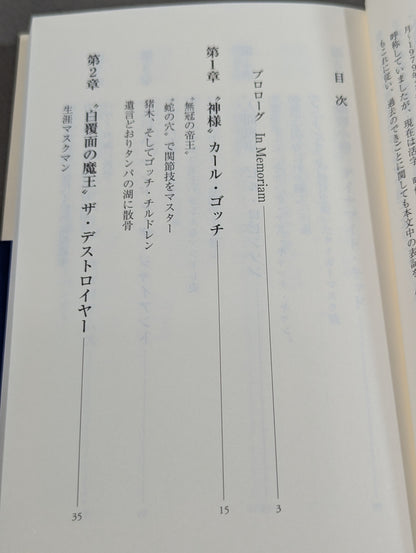 月～1979
呼称していましたが、現在は活字、
もこれに従い、過去のできごとに関しても本文中の表記
目次
プロローグ In Memoriam 3
第1章 “神様”カール・ゴッチ 15
“無冠の帝王”
“蛇の穴”で関節技をマスター
猪木、そしてゴッチ・チルドレン
遺言どおりタンパの湖に散骨
第2章 “白覆面の魔王”ザ・デストロイヤー 35
生涯マスクマン